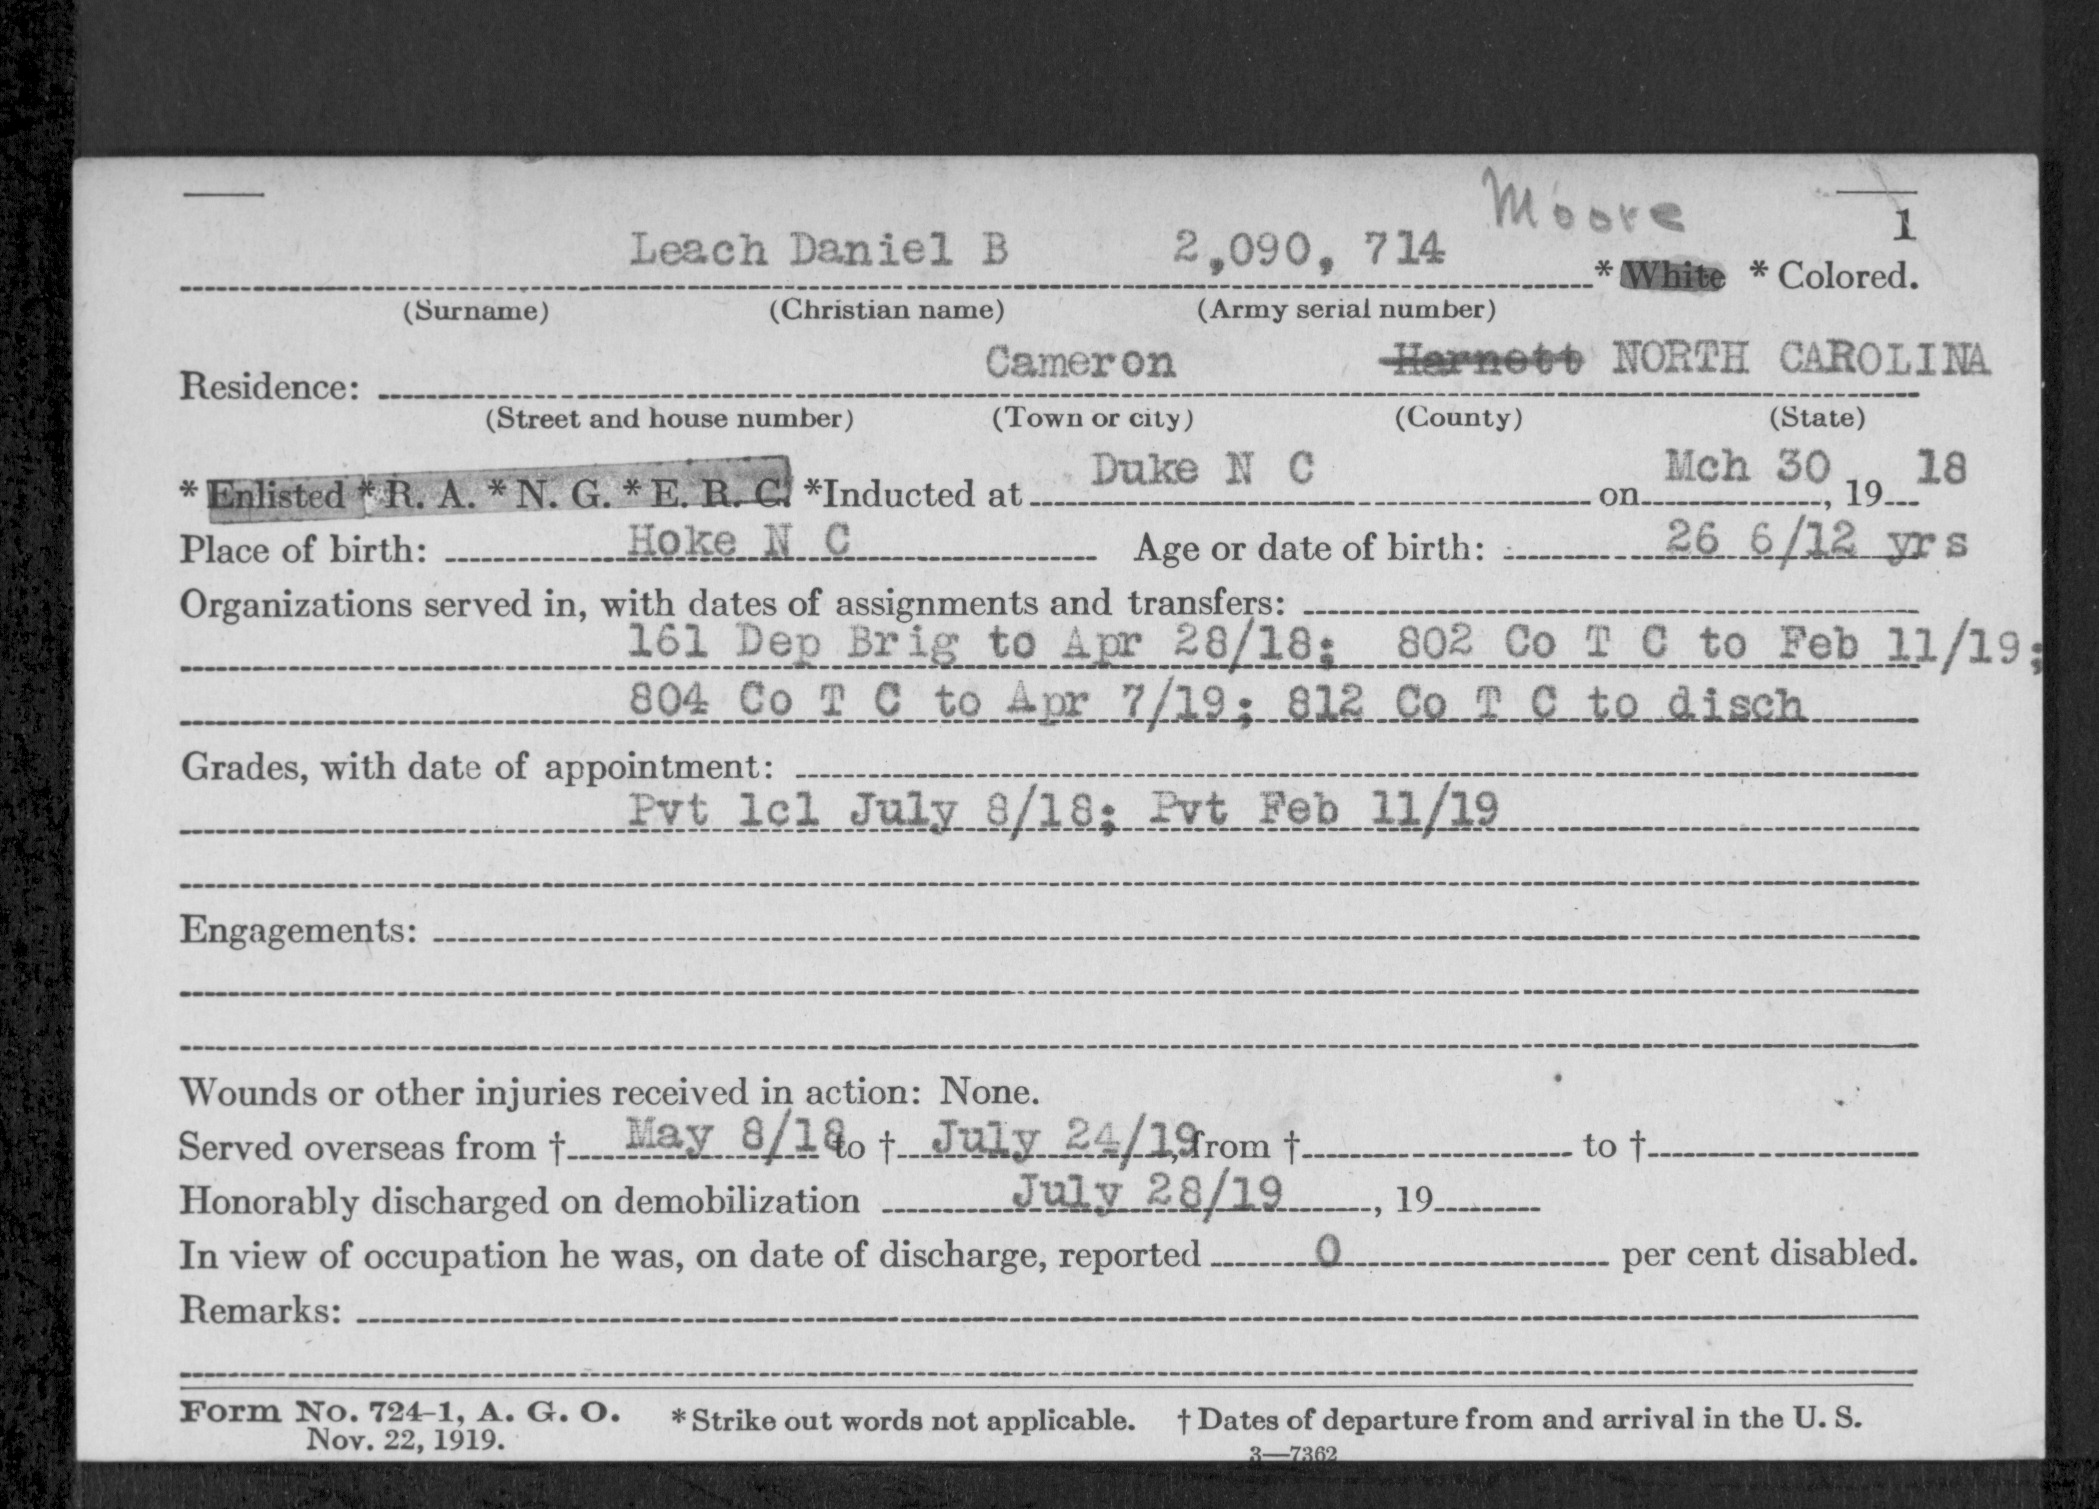 Moore
1
Leach Daniel B 2,090, 714 * White * Colored.
(Surname) (Christian name) (Army serial number)
Residence: Cameron Harnett NORTH CAROLINA
(Street and house number) (Town or city) (County) (State)
* Enlisted * R. A. * N. G. * E. R. C. *Inducted at Duke N C on Mch 30, 19 18
Place of birth: Hoke N C Age or date of birth: 26 6/12 yrs
Organizations served in, with dates of assignments and transfers:
161 Dep Brig to Apr 28/18; 802 Co T C to Feb 11/19;
804 Co T C to Apr 7/19; 812 Co T C to disch
Grades, with date of appointment:
Pvt 1cl July 8/18; Pvt Feb 11/19
Engagements:
Wounds or other injuries received in action: None.
Served overseas from † May 8/18 to † July 24/19, from † to †
Honorably discharged on demobilization July 28/19, 19
In view of occupation he was, on date of discharge, reported 0 per cent disabled.
Remarks:
Form No. 724-1, A. G. O. * Strike out words not applicable. † Dates of departure from and arrival in the U. S.
Nov. 22, 1919.
3—7362